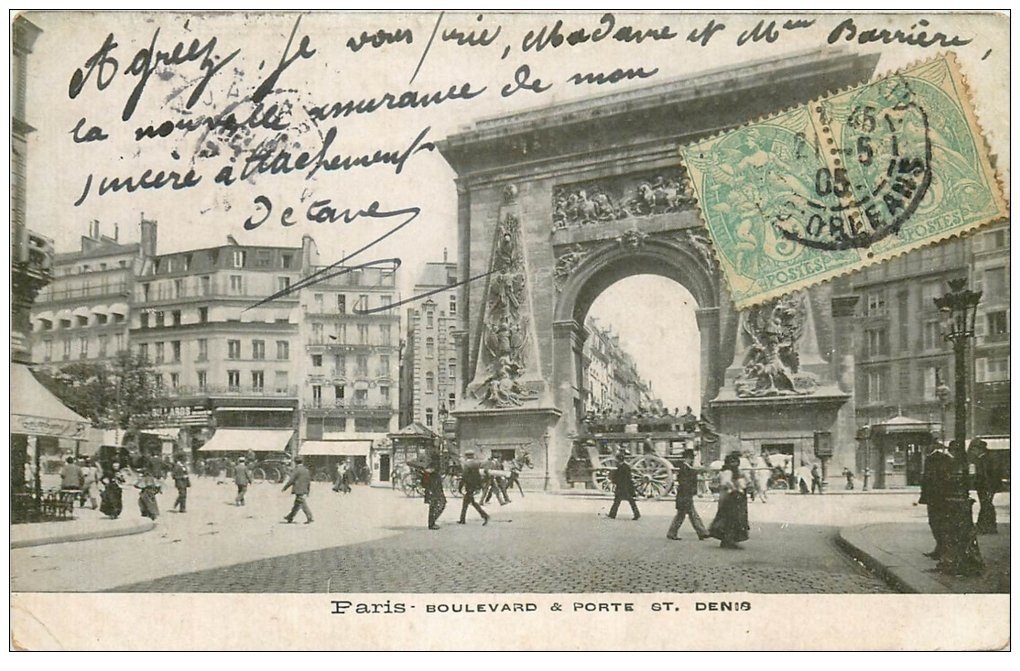 Agréez, je vous prie, Madame et Mme Barrière,
la nouvelle assurance de mon
sincère attachement
Octave
5 POSTES
POSTES
45
-5
05
ORLEANS
Paris - BOULEVARD & PORTE ST. DENIS